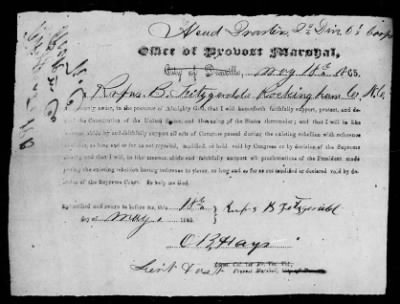 Head Quarters, 2d Div 6th Corps
Office of Provost Marshal,
City of Danville, May 18th 1865.
I, Rufus B. Fitzgerald Rockingham Co, N.C.
do solemnly swear, in the presence of Almighty God, that I will henceforth faithfully support, protect, and defend
the Constitution of the United States and the union of the States thereunder; and that I will in like
manner abide by and faithfully support all acts of Congress passed during the existing rebellion with reference
to slaves, so long and so far as not repealed, modified, or held void by Congress or by decision of the Supreme
Court; and that I will, in like manner abide and faithfully support all proclamations of the President made
during the existing rebellion having reference to slaves, so long and so far as not modified or declared void by decision
of the Supreme Court. So help me God.
Subscribed and sworn to before me, this 18th
day of May, 1865.
Rufus B Fitzgerald
O B Hays
Lieut
Provost Marshal,